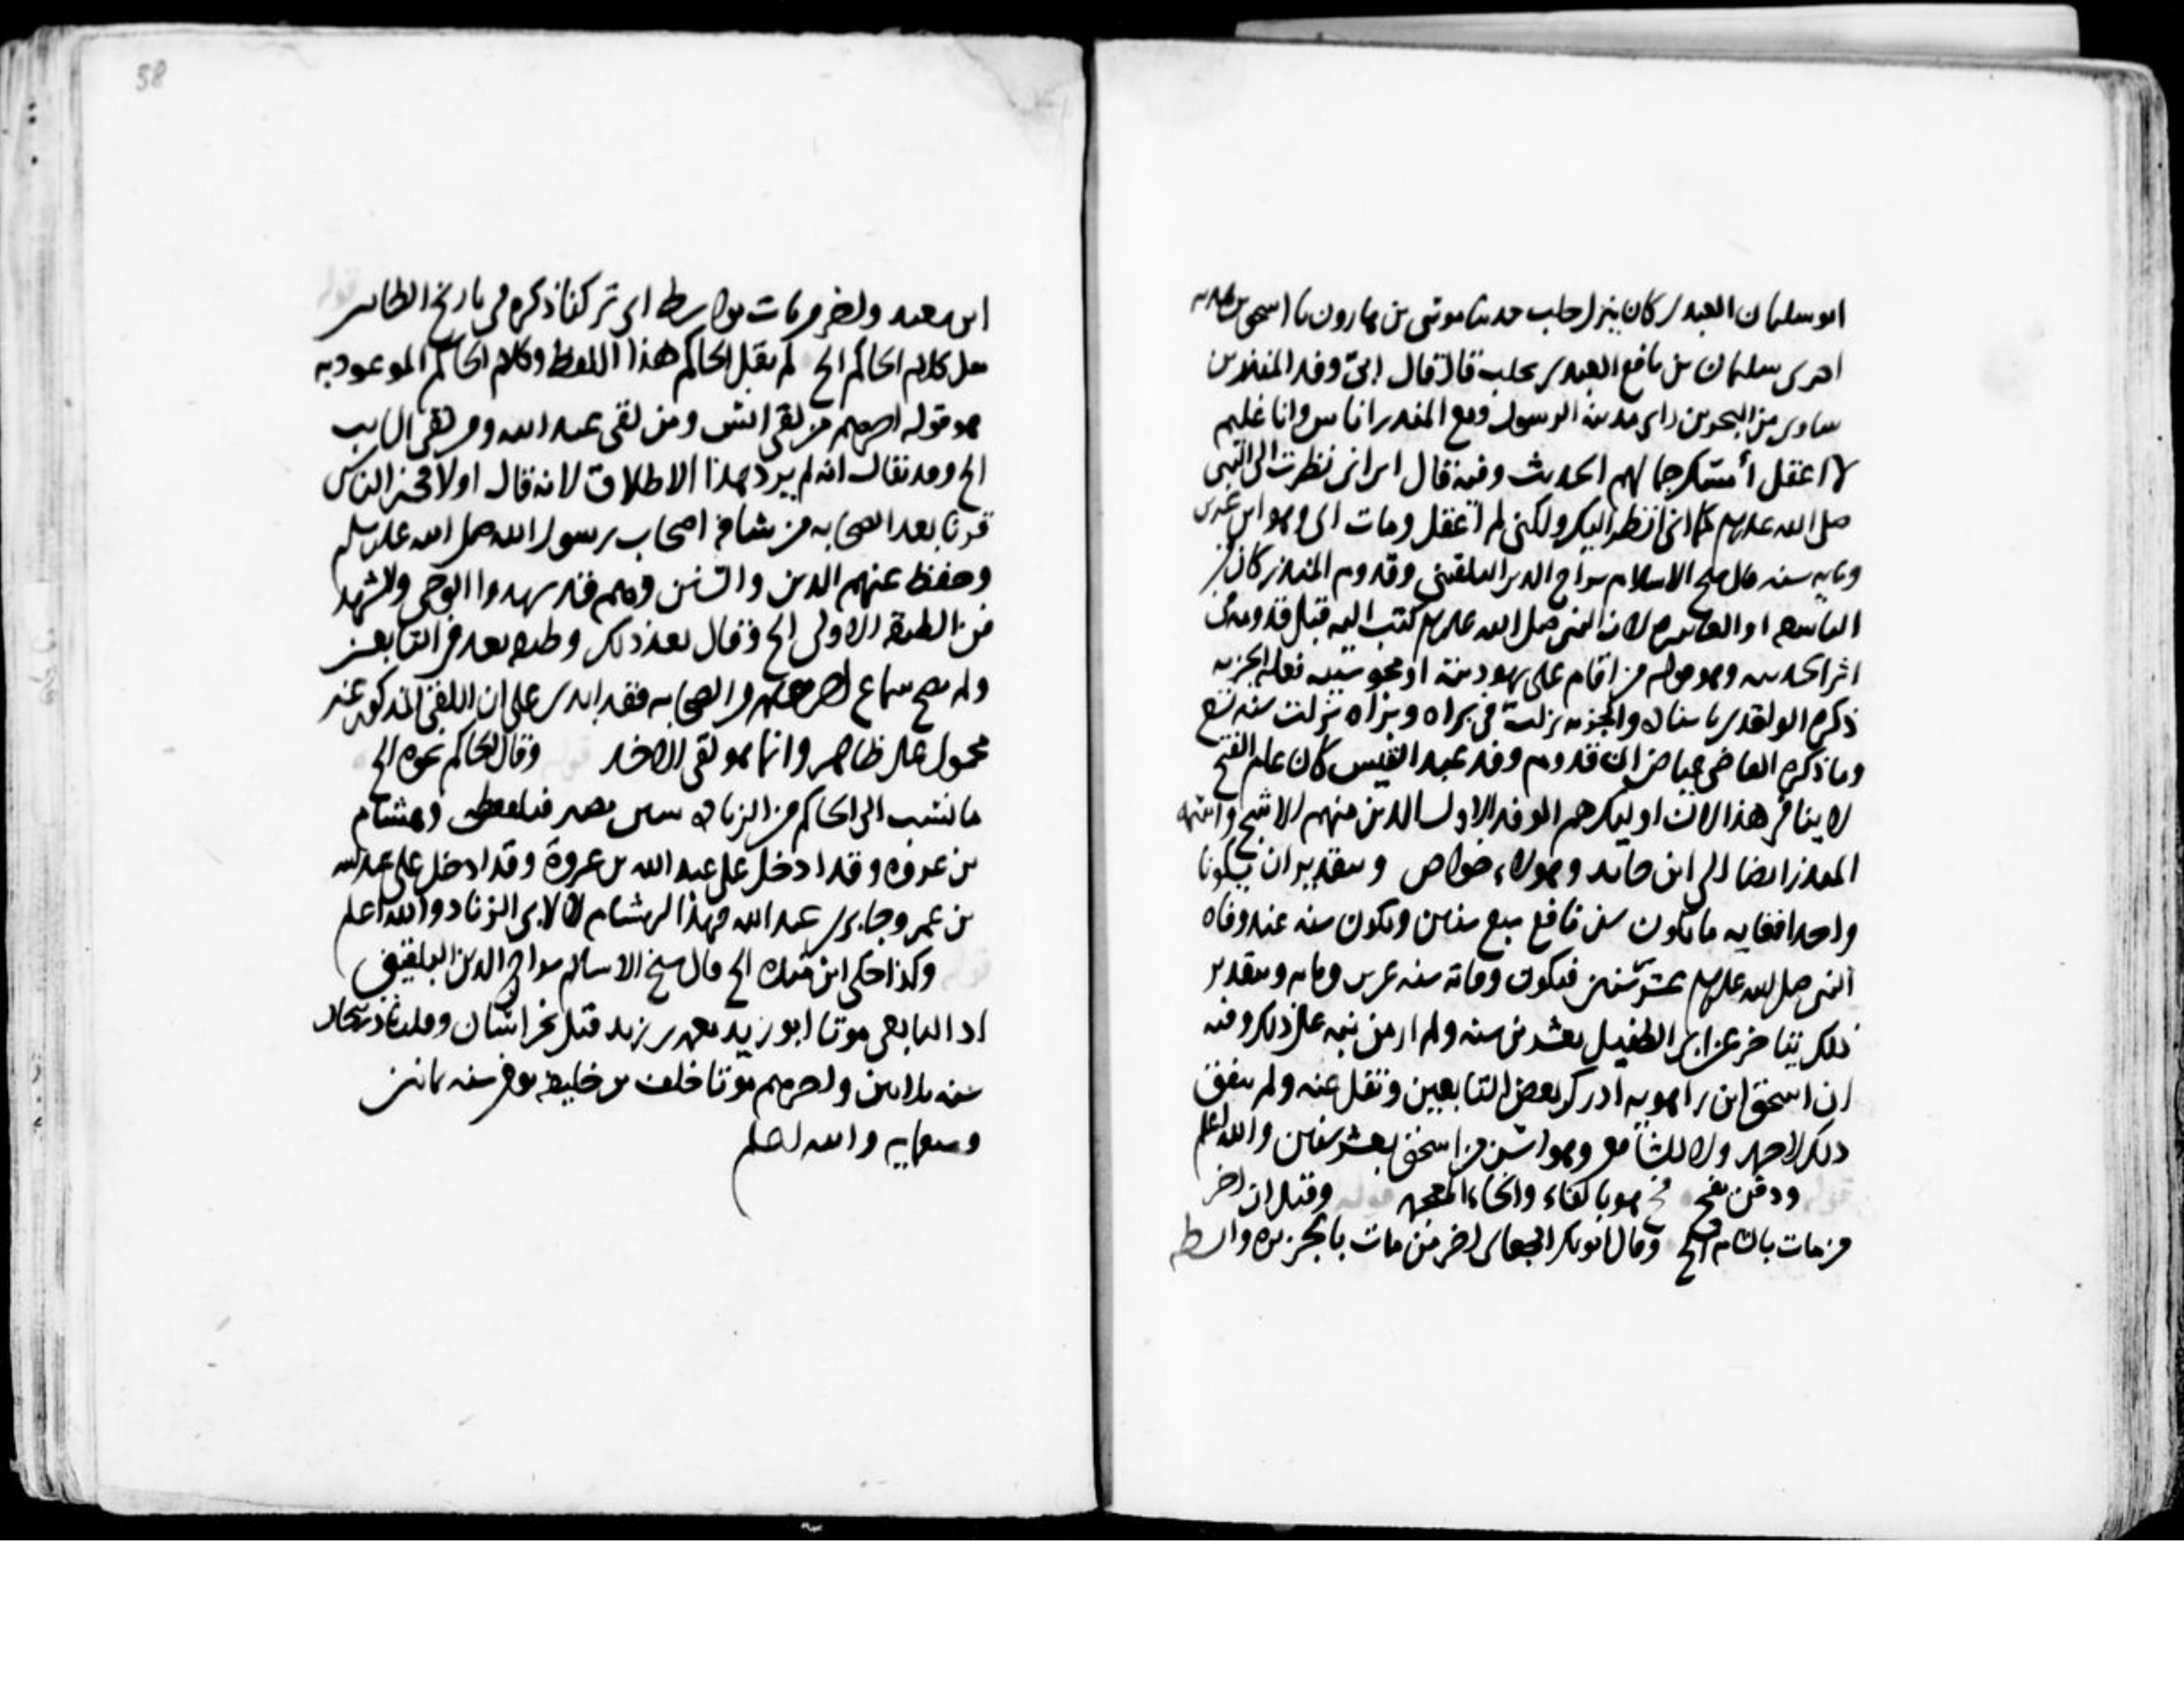 ابو سليمان العبدي كان ينزل حلب حدثنا موسى بن هارون نا اسحق بن
اخبرني سليمان بن نافع العبدي بحلب قال قال ابي وفد المنذر بن
ساوى من البحرين مدينة الرسول ومع المنذر اناس وانا غليم
لا اعقل أمسك جمالهم الحديث وفيه قال ابي اني نظرت الى النبي
صلى الله عليه وسلم كما اني انظر اليك ولكني لم اعقل ومات ابي وهو ابن عشرين
ومايه سنه قال شيخ الاسلام سراج الدين البلقيني وقدوم المنذر كان في
التاسعه او العاشره لان النبي صلى الله عليه وسلم كتب اليه قبل قدومه
وهو قوله من اقام على يهودية او مجوسية فعليه الجزيه
ذكره الواقدي باسناده والجزيه نزلت في براة وبراة نزلت سنه تسع
وما ذكره القاضي عياض ان قدوم وفد عبد القيس كان عام الفتح
لا ينافي هذا لان اوليك هم الوفد الاول الذين منهم الاشج واسمه
المنذر ايضا الى ابن عايد وهولاء خواص وبتقدير ان يكونا
واحدا فغايه ما يكون سن نافع سبع سنين ويكون سنه عند وفاه
النبي صلى الله عليه وسلم عشر سنين فيكون وفاته سنه عشرين ومايه وبتقدير
ذلك يتاخر عن ابي الطفيل بعشرين سنه ولم ار من نبه على ذلك وفيه
ان اسحق ابن راهويه ادرك بعض التابعين ونقل عنه ولم يتفق
ذلك لاحمد ولا للشافعي وهو اسن من اسحق بعشر سنين والله اعلم
ودفن بفخ فخ هو بالفاء والخاء المعجمه قوله وقيل ان اخر
من مات بالشام الخ وقال ابو بكر الجعابي اخر من مات بالجزيره وابصه
58
ابن معبد واخر من مات بواسط ابي تركنا ذكره في تاريخ الطاير
مثل كلام الحاكم الخ لم يقل الحاكم هذا اللفظ وكلام الحاكم الموعود به
هو قوله اخرهم من لقي انس ومن لقي عبد الله ومن لقي السايب
الخ وقد يقال انه لم يرد بهذا الاطلاق لانه قال اولا فخير الناس
قرنا بعد الصحابه من شافه اصحاب رسول الله صلى الله عليه وسلم
وحفظ عنهم الدين والسنن وهم قد شهدوا الوحي
من الطبقه الاولى الخ وقال بعد ذلك وطبقه تعد في التابعين
ولم يصح سماع احد منهم من الصحابه فقد على ان اللقي المذكور عنده
محمول على ظاهره وانما هو لقي الاخذ قوله وقال الحاكم نحوه الخ
ما نسب الى الحاكم من الزياده ليس بصر فيه لفظه وهشام
بن عروه وقد ادخل على عبد الله بن عروة وقد ادخل على عبد الله
بن عمر وجابر بن عبد الله فهذا لهشام لا لابي الزناد والله اعلم
قوله وكذا حكى ابن الخ قال شيخ الاسلام سراج الدين البلقيني
اول التابعي موتا ابو زيد معمر بن زيد قتل بخراسان وقيل باذربيجان
سنه ثلاثين واخرهم موتا خلف بن خليفه توفي سنه ثمانين
ومايه والله اعلم